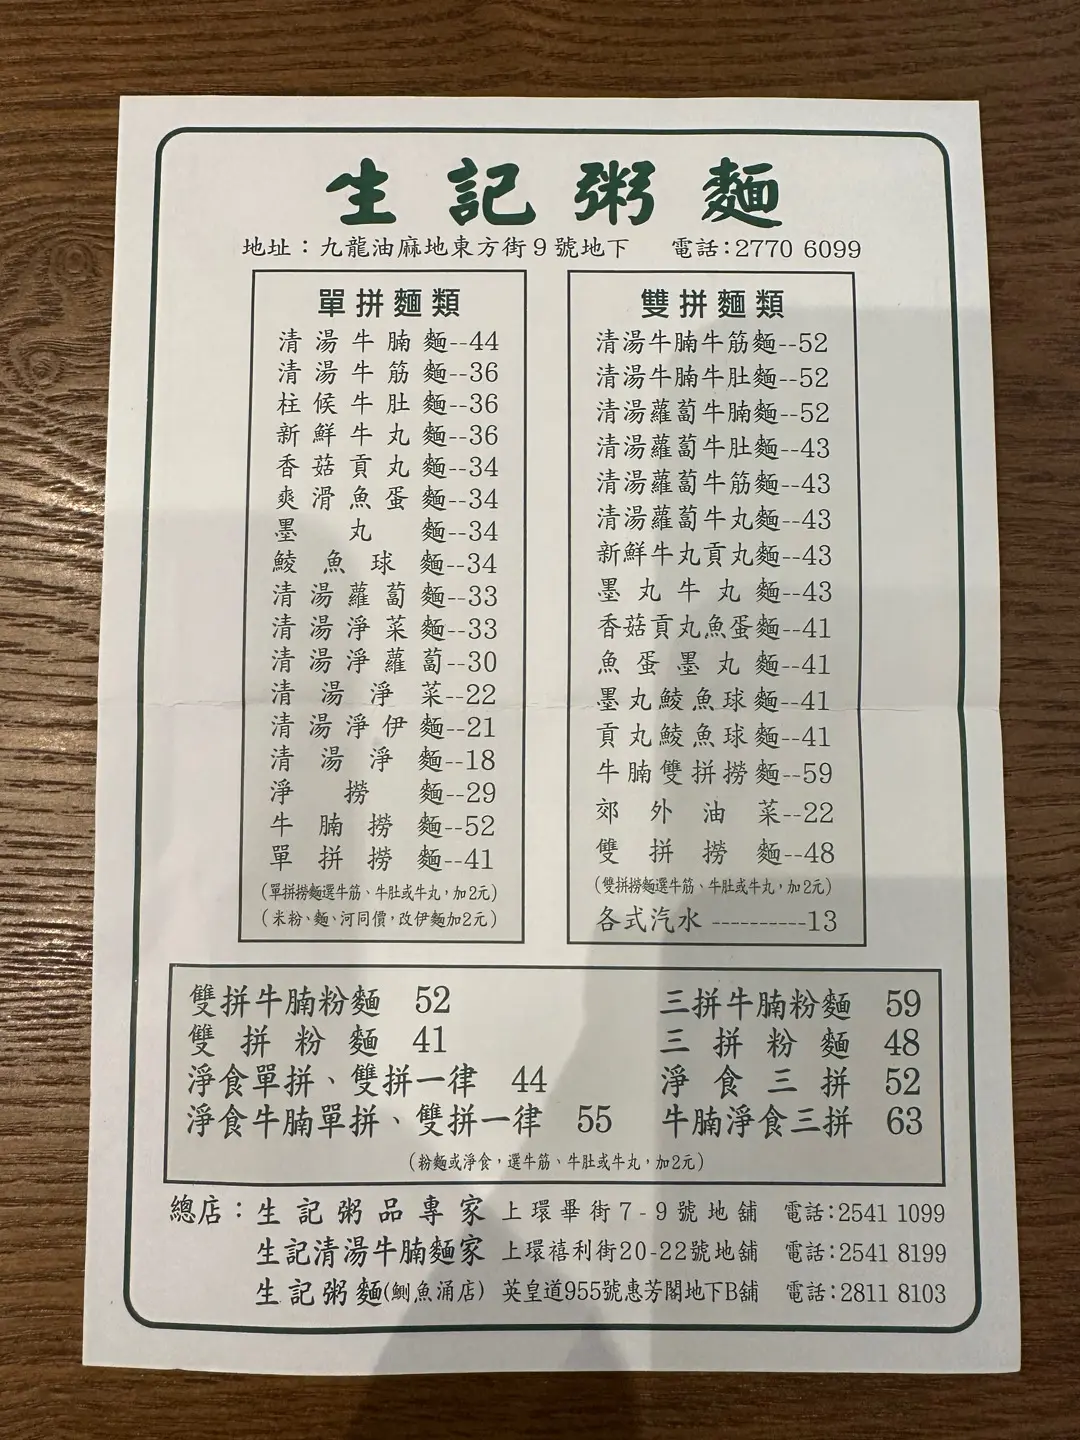 生記粥麵
地址：九龍油麻地東方街9號地下 電話：2770 6099
單拼麵類
清湯牛腩麵--44
清湯牛筋麵--36
柱候牛肚麵--36
新鮮牛丸麵--36
香菇貢丸麵--34
爽滑魚蛋麵--34
墨丸麵--34
鯪魚球麵--34
清湯蘿蔔麵--33
清湯淨菜麵--33
清湯淨蘿蔔--30
清湯淨菜--22
清湯淨伊麵--21
清湯淨麵--18
淨撈麵--29
牛腩撈麵--52
單拼撈麵--41
(單拼撈麵選牛筋、牛肚或牛丸，加2元)
(米粉、麵、河同價，改伊麵加2元)
雙拼麵類
清湯牛腩牛筋麵--52
清湯牛腩牛肚麵--52
清湯蘿蔔牛腩麵--52
清湯蘿蔔牛肚麵--43
清湯蘿蔔牛筋麵--43
清湯蘿蔔牛丸麵--43
新鮮牛丸貢丸麵--43
墨丸牛丸麵--43
香菇貢丸魚蛋麵--41
魚蛋墨丸麵--41
墨丸鯪魚球麵--41
貢丸鯪魚球麵--41
牛腩雙拼撈麵--59
郊外油菜--22
雙拼撈麵--48
(雙拼撈麵選牛筋、牛肚或牛丸，加2元)
各式汽水----------13
雙拼牛腩粉麵 52
雙拼粉麵 41
淨食單拼、雙拼一律 44
淨食牛腩單拼、雙拼一律 55
三拼牛腩粉麵 59
三拼粉麵 48
淨食三拼 52
牛腩淨食三拼 63
(粉麵或淨食，選牛筋、牛肚或牛丸，加2元)
總店：生記粥品專家 上環畢街7-9號地舖 電話：2541 1099
生記清湯牛腩麵家 上環禧利街20-22號地舖 電話：2541 8199
生記粥麵(鰂魚涌店) 英皇道955號惠芳閣地下B舖 電話：2811 8103